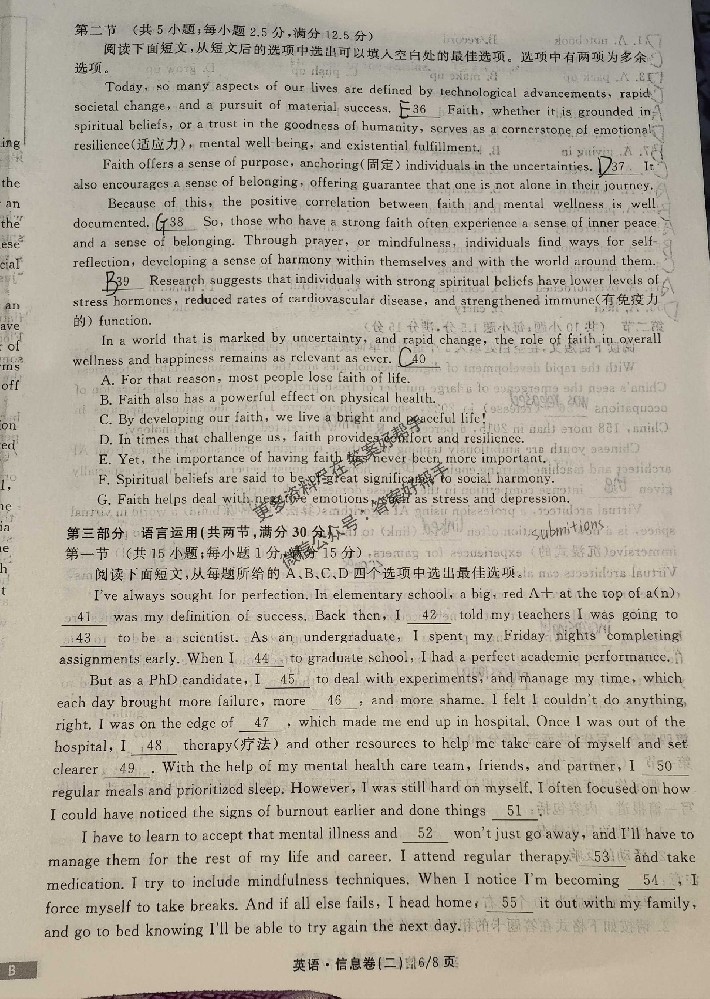 第二节 (共 5 小题;每小题 2.5 分,满分 12.5 分)
阅读下面短文,从短文后的选项中选出可以填入空白处的最佳选项。选项中有两项为多余
选项。
Today, so many aspects of our lives are defined by technological advancements, rapid
societal change, and a pursuit of material success. E 36 Faith, whether it is grounded in
spiritual beliefs, or a trust in the goodness of humanity, serves as a cornerstone of emotional
resilience(适应力), mental well-being, and existential fulfillment.
Faith offers a sense of purpose, anchoring(固定) individuals in the uncertainties. D 37 It
also encourages a sense of belonging, offering guarantee that one is not alone in their journey.
Because of this, the positive correlation between faith and mental wellness is well
documented. G 38 So, those who have a strong faith often experience a sense of inner peace
and a sense of belonging. Through prayer, or mindfulness, individuals find ways for self-
reflection, developing a sense of harmony within themselves and with the world around them.
B 39 Research suggests that individuals with strong spiritual beliefs have lower levels of
stress hormones, reduced rates of cardiovascular disease, and strengthened immune(有免疫力
的) function.
In a world that is marked by uncertainty, and rapid change, the role of faith in overall
wellness and happiness remains as relevant as ever. C 40
A. For that reason, most people lose faith of life.
B. Faith also has a powerful effect on physical health.
C. By developing our faith, we live a bright and peaceful life!
D. In times that challenge us, faith provides comfort and resilience.
E. Yet, the importance of having faith has never been more important.
F. Spiritual beliefs are said to be of great significance to social harmony.
G. Faith helps deal with negative emotions such as stress and depression.
更多资料尽在 答案好帮手
微信公众号:答案好帮手
第三部分 语言运用(共两节,满分 30 分)
submitions
第一节 (共 15 小题;每小题 1 分,满分 15 分)
阅读下面短文,从每题所给的 A、B、C、D 四个选项中选出最佳选项。
I've always sought for perfection. In elementary school, a big, red A+ at the top of a(n)
41 was my definition of success. Back then, I 42 told my teachers I was going to
43 to be a scientist. As an undergraduate, I spent my Friday nights completing
assignments early. When I 44 to graduate school, I had a perfect academic performance.
But as a PhD candidate, I 45 to deal with experiments, and manage my time, which
each day brought more failure, more 46 , and more shame. I felt I couldn't do anything
right. I was on the edge of 47 , which made me end up in hospital. Once I was out of the
hospital, I 48 therapy(疗法) and other resources to help me take care of myself and set
clearer 49 . With the help of my mental health care team, friends, and partner, I 50
regular meals and prioritized sleep. However, I was still hard on myself. I often focused on how
I could have noticed the signs of burnout earlier and done things 51 .
I have to learn to accept that mental illness and 52 won't just go away, and I'll have to
manage them for the rest of my life and career. I attend regular therapy 53 and take
medication. I try to include mindfulness techniques. When I notice I'm becoming 54 , I
force myself to take breaks. And if all else fails, I head home, 55 it out with my family,
and go to bed knowing I'll be able to try again the next day.
英语·信息卷(二) 第6/8 页
B
ing
the
an
the
ese
cial
an
ave
of
ms
off
ion
ed